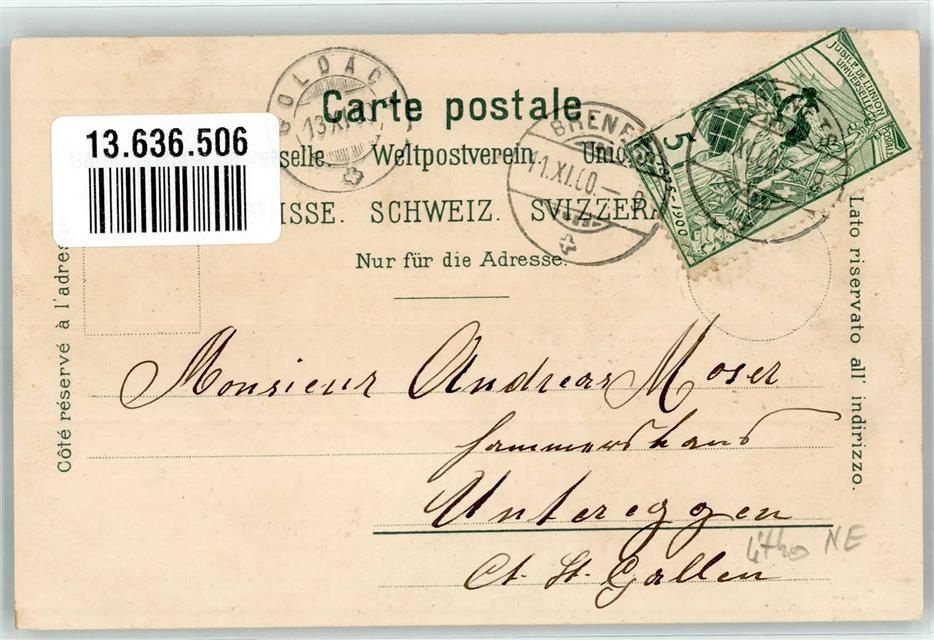 GOLDAC
13.XI.
Carte postale.
13.636.506
BRENE
11.XI.00.–8
BRENE
XI.00.
JUBILÉ DE L'UNION
UNIVERSELLE POSTALE
5
1875-1900
selle. Weltpostverein. Unio
ISSE. SCHWEIZ. SVIZZERA
Nur für die Adresse.
Côté réservé à l'adres
Lato riservato all' indirizzo.
Monsieur Andreas Moser
Hammershaus
Untereggen
Ct. St. Gallen
Litho NE